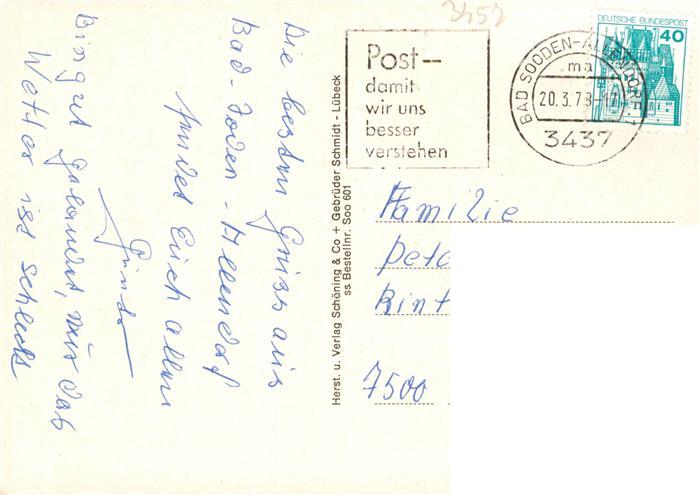 3452
Post–
damit
wir uns
besser
verstehen
BAD SOODEN-ALLENDORF 1
ma
20.3.78-17
3437
DEUTSCHE BUNDESPOST
40
Die besten Grüsse aus
Bad-Soden-Allendorf
sendet Euch allen
Bin gut gelandet, nur das
Wetter ist schlecht
Herst. u. Verlag Schöning & Co + Gebrüder Schmidt - Lübeck
ss. Bestellnr. Soo 601
Familie
Pete
Rint
7500